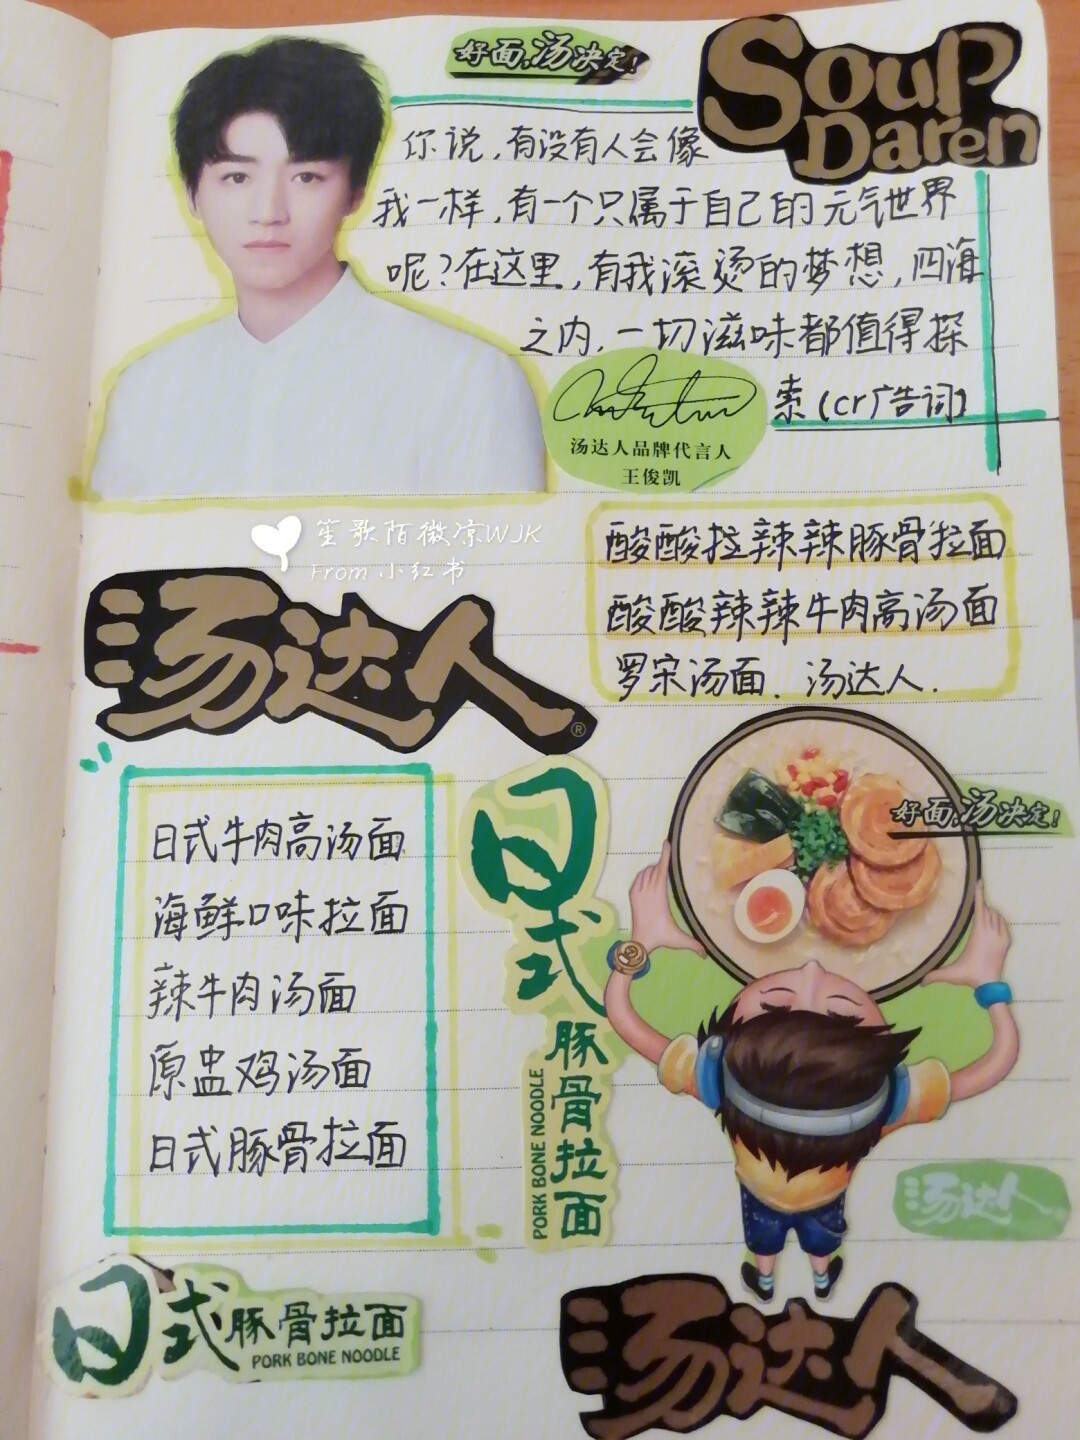 好面,汤决定!
Soup
Daren
你说,有没有人会像
我一样,有一个只属于自己的元气世界
呢?在这里,有我滚烫的梦想,四海
之内,一切滋味都值得探
索(cr广告词)
汤达人品牌代言人
王俊凯
笙歌陌微凉WJK
From 小红书
酸酸拉辣辣豚骨拉面
酸酸辣辣牛肉高汤面
罗宋汤面.汤达人.
汤达人®
日式牛肉高汤面
海鲜口味拉面
辣牛肉汤面
原盅鸡汤面
日式豚骨拉面
日式
豚骨拉面
PORK BONE NOODLE
好面,汤决定!
汤达人
日式豚骨拉面
PORK BONE NOODLE
汤达人